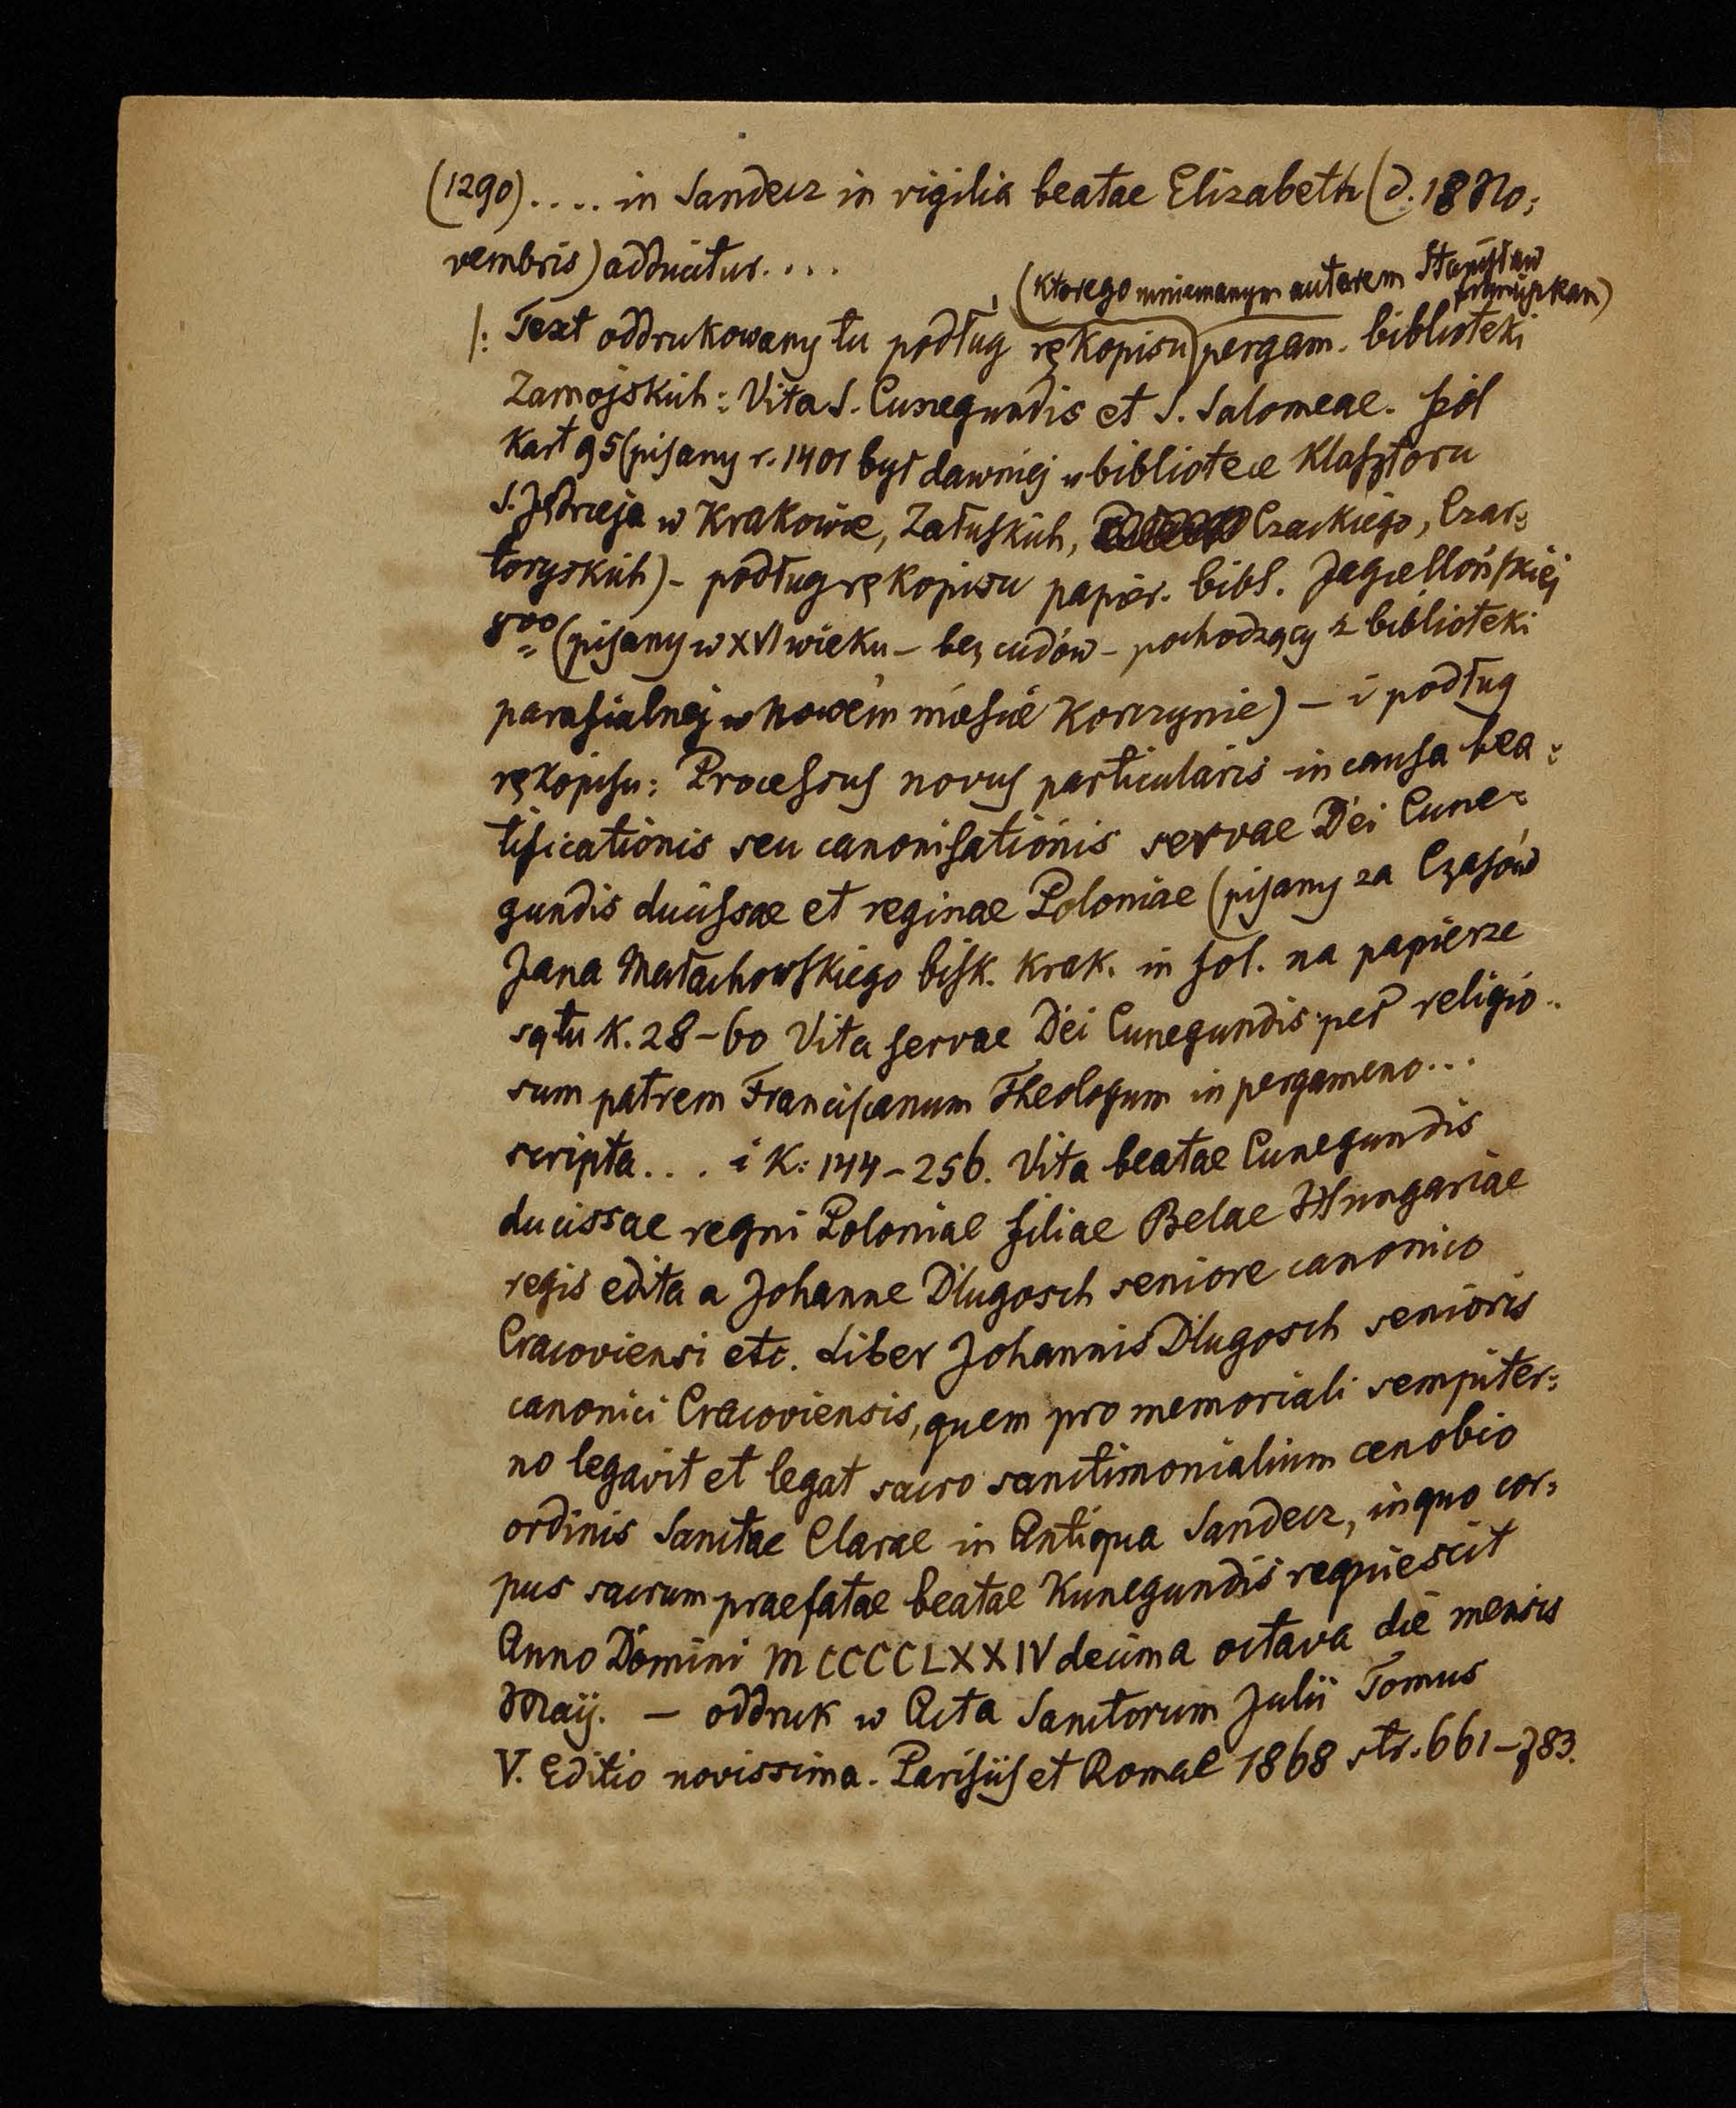 (1290).... in Sandecz in vigilia beatae Elizabeth (d. 18 No:
vembris) adducitur....
(ktorego mniemanym autorem Stanisław franciszkan)
/: Text oddrukowany tu podług rękopisu pergam. biblioteki
Zamojskich: Vita S. Cunegundis et S. Salomeae. fol
kart 95 (pisany r. 1401 był dawniej w bibliotece klasztoru
S. Jędrzeja w Krakowie, Załuskich, Czackiego, Czar:
toryskich) - podług rękopisu papier. bibl. Jagiellońskiej
8vo (pisany w XVI wieku - bez cudów - pochodzący z biblioteki
parafialnej w nowem mieście Korczynie) - i podług
rękopisu: Processus novus particularis in causa bea:
tificationis seu canonisationis servae Dei Cune:
gundis ducissae et reginae Poloniae (pisany za czasów
Jana Małachowskiego bisk. krak. in fol. na papierze
są tu k. 28-60 Vita servae Dei Cunegundis per religio:
sum patrem Franciscanum Theologum in pergameno...
scripta... i k: 144-256. Vita beatae Cunegundis
ducissae regni Poloniae filiae Belae Hungariae
regis edita a Johanne Dlugosch seniore canonico
Cracoviensi etc. Liber Johannis Dlugosch senioris
canonici Cracoviensis, quem pro memoriali sempiter:
no legavit et legat sacro sanctimonialium cenobio
ordinis Sanctae Clarae in Antiqua Sandecz, in quo cor:
pus sacrum praefatae beatae Kunegundis requiescit
Anno Domini MCCCCLXXIV decima octava die mensis
Maij. - oddruk w Acta Sanctorum Julii Tomus
V. Editio novissima. Parisiis et Romae 1868 str. 661-783.